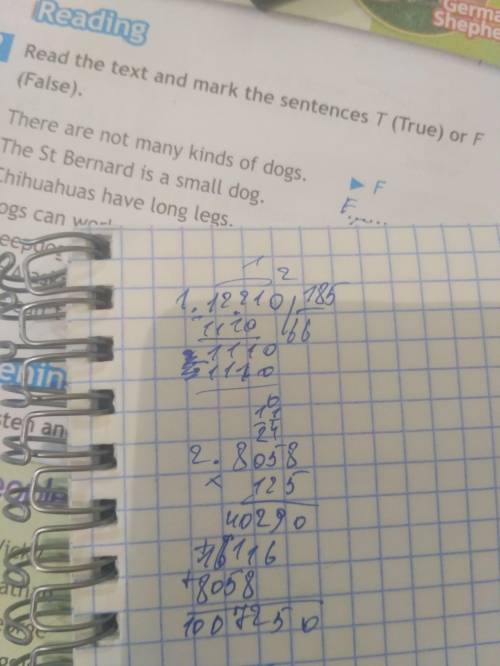 Reading
Germa
Shephe
Read the text and mark the sentences T (True) or F
(False).
There are not many kinds of dogs.
► F
The St Bernard is a small dog.
F
Chihuahuas have long legs.
ogs can wor
1
2
1. 12210 185
1110 66
1110
1110
2. 8058
125
40290
16116
+8058
1007250